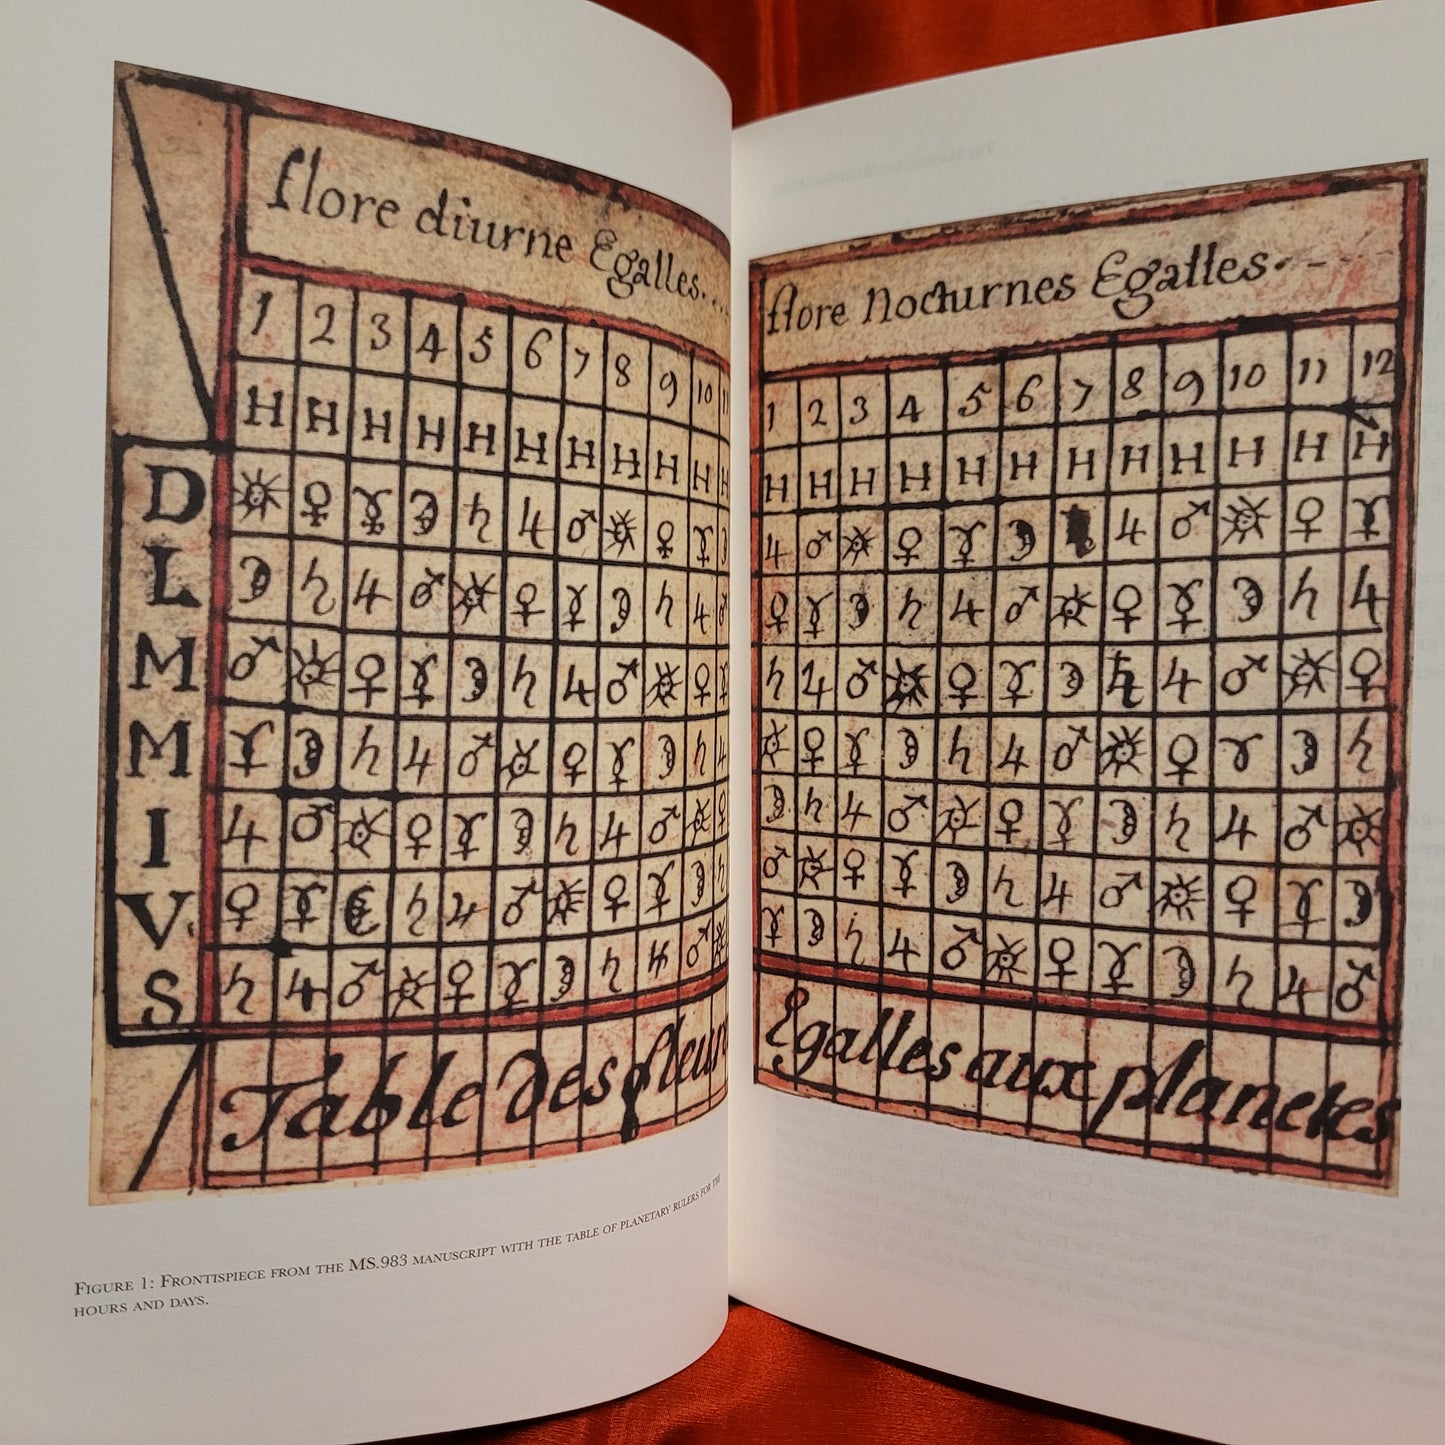 flore diurne Egalles....
1 2 3 4 5 6 7 8 9 10
H H H H H H H H H H H
D ☉ ♀ ☿ ☽ ♄ ♃ ♂ ☉ ♀ ☿ ☽
L ☽ ♄ ♃ ♂ ☉ ♀ ☿ ☽ ♄ ♃ ♂
M ♂ ☉ ♀ ☿ ☽ ♄ ♃ ♂ ☉ ♀ ☿
M ☿ ☽ ♄ ♃ ♂ ☉ ♀ ☿ ☽ ♄ ♃
I ♃ ♂ ☉ ♀ ☿ ☽ ♄ ♃ ♂ ☉ ♀
V ♀ ☿ ☽ ♄ ♃ ♂ ☉ ♀ ☿ ☽ ♄
S ♄ ♃ ♂ ☉ ♀ ☿ ☽ ♄ ♃ ♂ ☉
Table des
Figure 1: Frontispiece from the MS.983 manuscript with the table of planetary rulers for the
hours and days.
flore Nocturnes Egalles.---
1 2 3 4 5 6 7 8 9 10 11 12
H H H H H H H H H H H H
♃ ♂ ☉ ♀ ☿ ☽ ♃ ♂ ☉ ♀ ☿
♀ ☿ ☽ ♄ ♃ ♂ ☉ ♀ ☿ ☽ ♄ ♃
♄ ♃ ♂ ☉ ♀ ☿ ☽ ♄ ♃ ♂ ☉ ♀
☉ ♀ ☿ ☽ ♄ ♃ ♂ ☉ ♀ ♈ ☽ ♄
☽ ♄ ♃ ♂ ☉ ♀ ☿ ☽ ♄ ♃ ♂ ☉
♂ ☉ ♀ ☿ ☽ ♄ ♃ ♂ ☉ ♀ ☿ ☽
☿ ☽ ♄ ♃ ♂ ☉ ♀ ☿ ☽ ♄ ♃ ♂
Egalles aux planetes